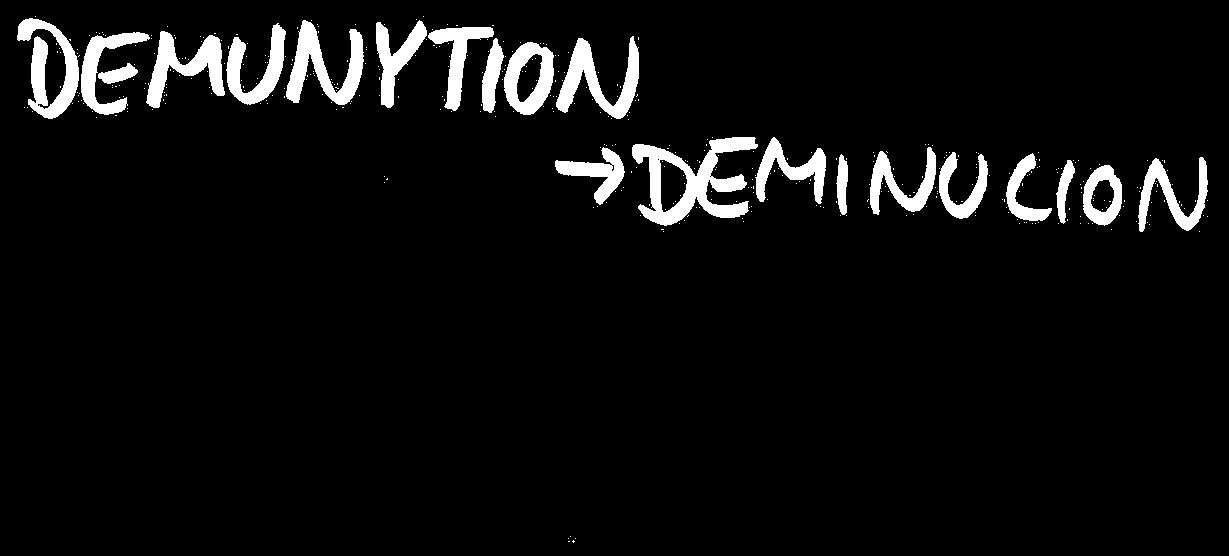 DEMUNYTION
→DEMINUCION